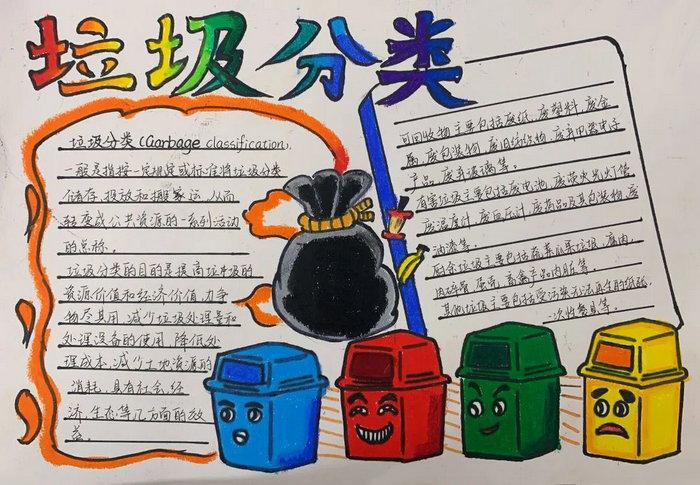 垃圾分类
垃圾分类(Garbage classification),
一般是指按一定规定或标准将垃圾分类
储存、投放和搬运,从而
转变成公共资源的一系列活动
的总称。
垃圾分类的目的是提高垃圾的
资源价值和经济价值,力争
物尽其用,减少垃圾处理量和
处理设备的使用,降低处
理成本,减少土地资源的
消耗,具有社会、经
济、生态等几方面的效
益。
可回收物主要包括废纸、废塑料、废金
属、废包装物、废旧纺织物、废弃电器电子
产品、废弃玻璃等。
有害垃圾主要包括废电池、废荧火出灯管
废温度计、废血压计、废药品及其包装物、废
油漆等。
厨余垃圾主要包括蔬菜瓜果垃圾、腐肉、
肉碎骨、蛋壳、畜禽产品内脏等。
其他垃圾主要包括受污染
一次性餐具等。